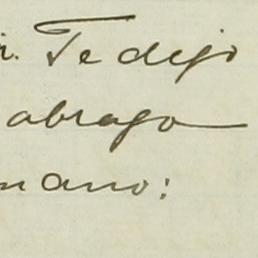 r. Te dejo
abrazo
mano: